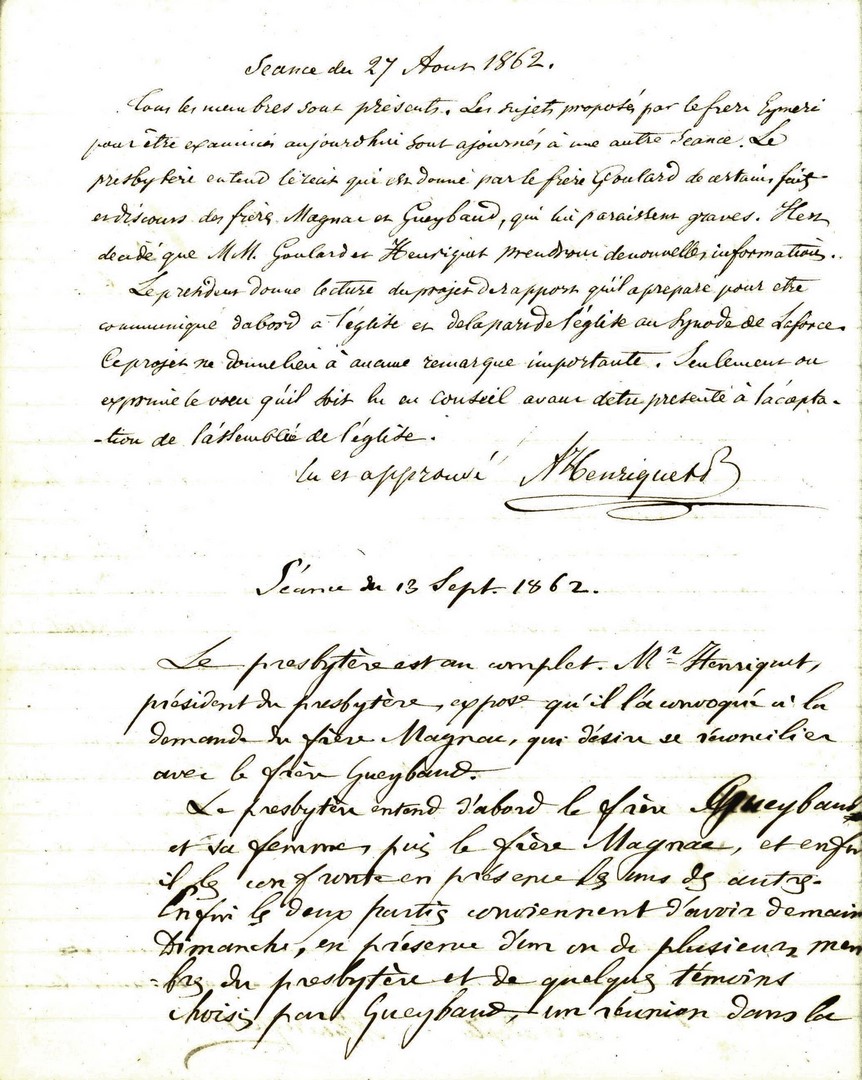 Séance du 27 Aout 1862.
Tous les membres sont présents. Les sujets proposés par le frère Eymeri
pour être examinés aujourd'hui sont ajournés à une autre Séance. Le
presbytère entend le récit qui est donné par le frère Goulard de certains faits
et discours des frères Magnac et Gueyband, qui lui paraissent graves. Il est
décidé que M.M. Goulard et Henriquet prendront de nouvelles informations.
Le président donne lecture du projet de rapport qu'il a préparé pour être
communiqué d'abord à l'église et de la part de l'église au Synode de Laforce.
Ce projet ne donne lieu à aucune remarque importante. Seulement on
exprime le voeu qu'il soit lu en conseil avant d'être présenté à l'accepta-
-tion de l'assemblée de l'église.
Lu et approuvé AHenriquet
Séance du 13 Sept. 1862.
Le presbytère est au complet. Mr Henriquet,
président du presbytère, expose qu'il l'a convoqué à la
demande du frère Magnac, qui désire se réconcilier
avec le frère Gueyband.
Le presbytère entend d'abord le frère Gueyband
et sa femme, puis le frère Magnac, et enfin
il les confronte en présence les uns des autres.
Enfin les deux partis conviennent d'avoir demain
Dimanche, en présence d'un ou de plusieurs mem
-bres du presbytère et de quelques témoins
choisis par Gueyband, un réunion dans la